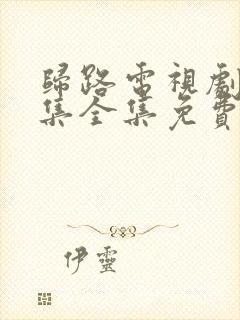 歸路電視劇
集全集免費
伊靈